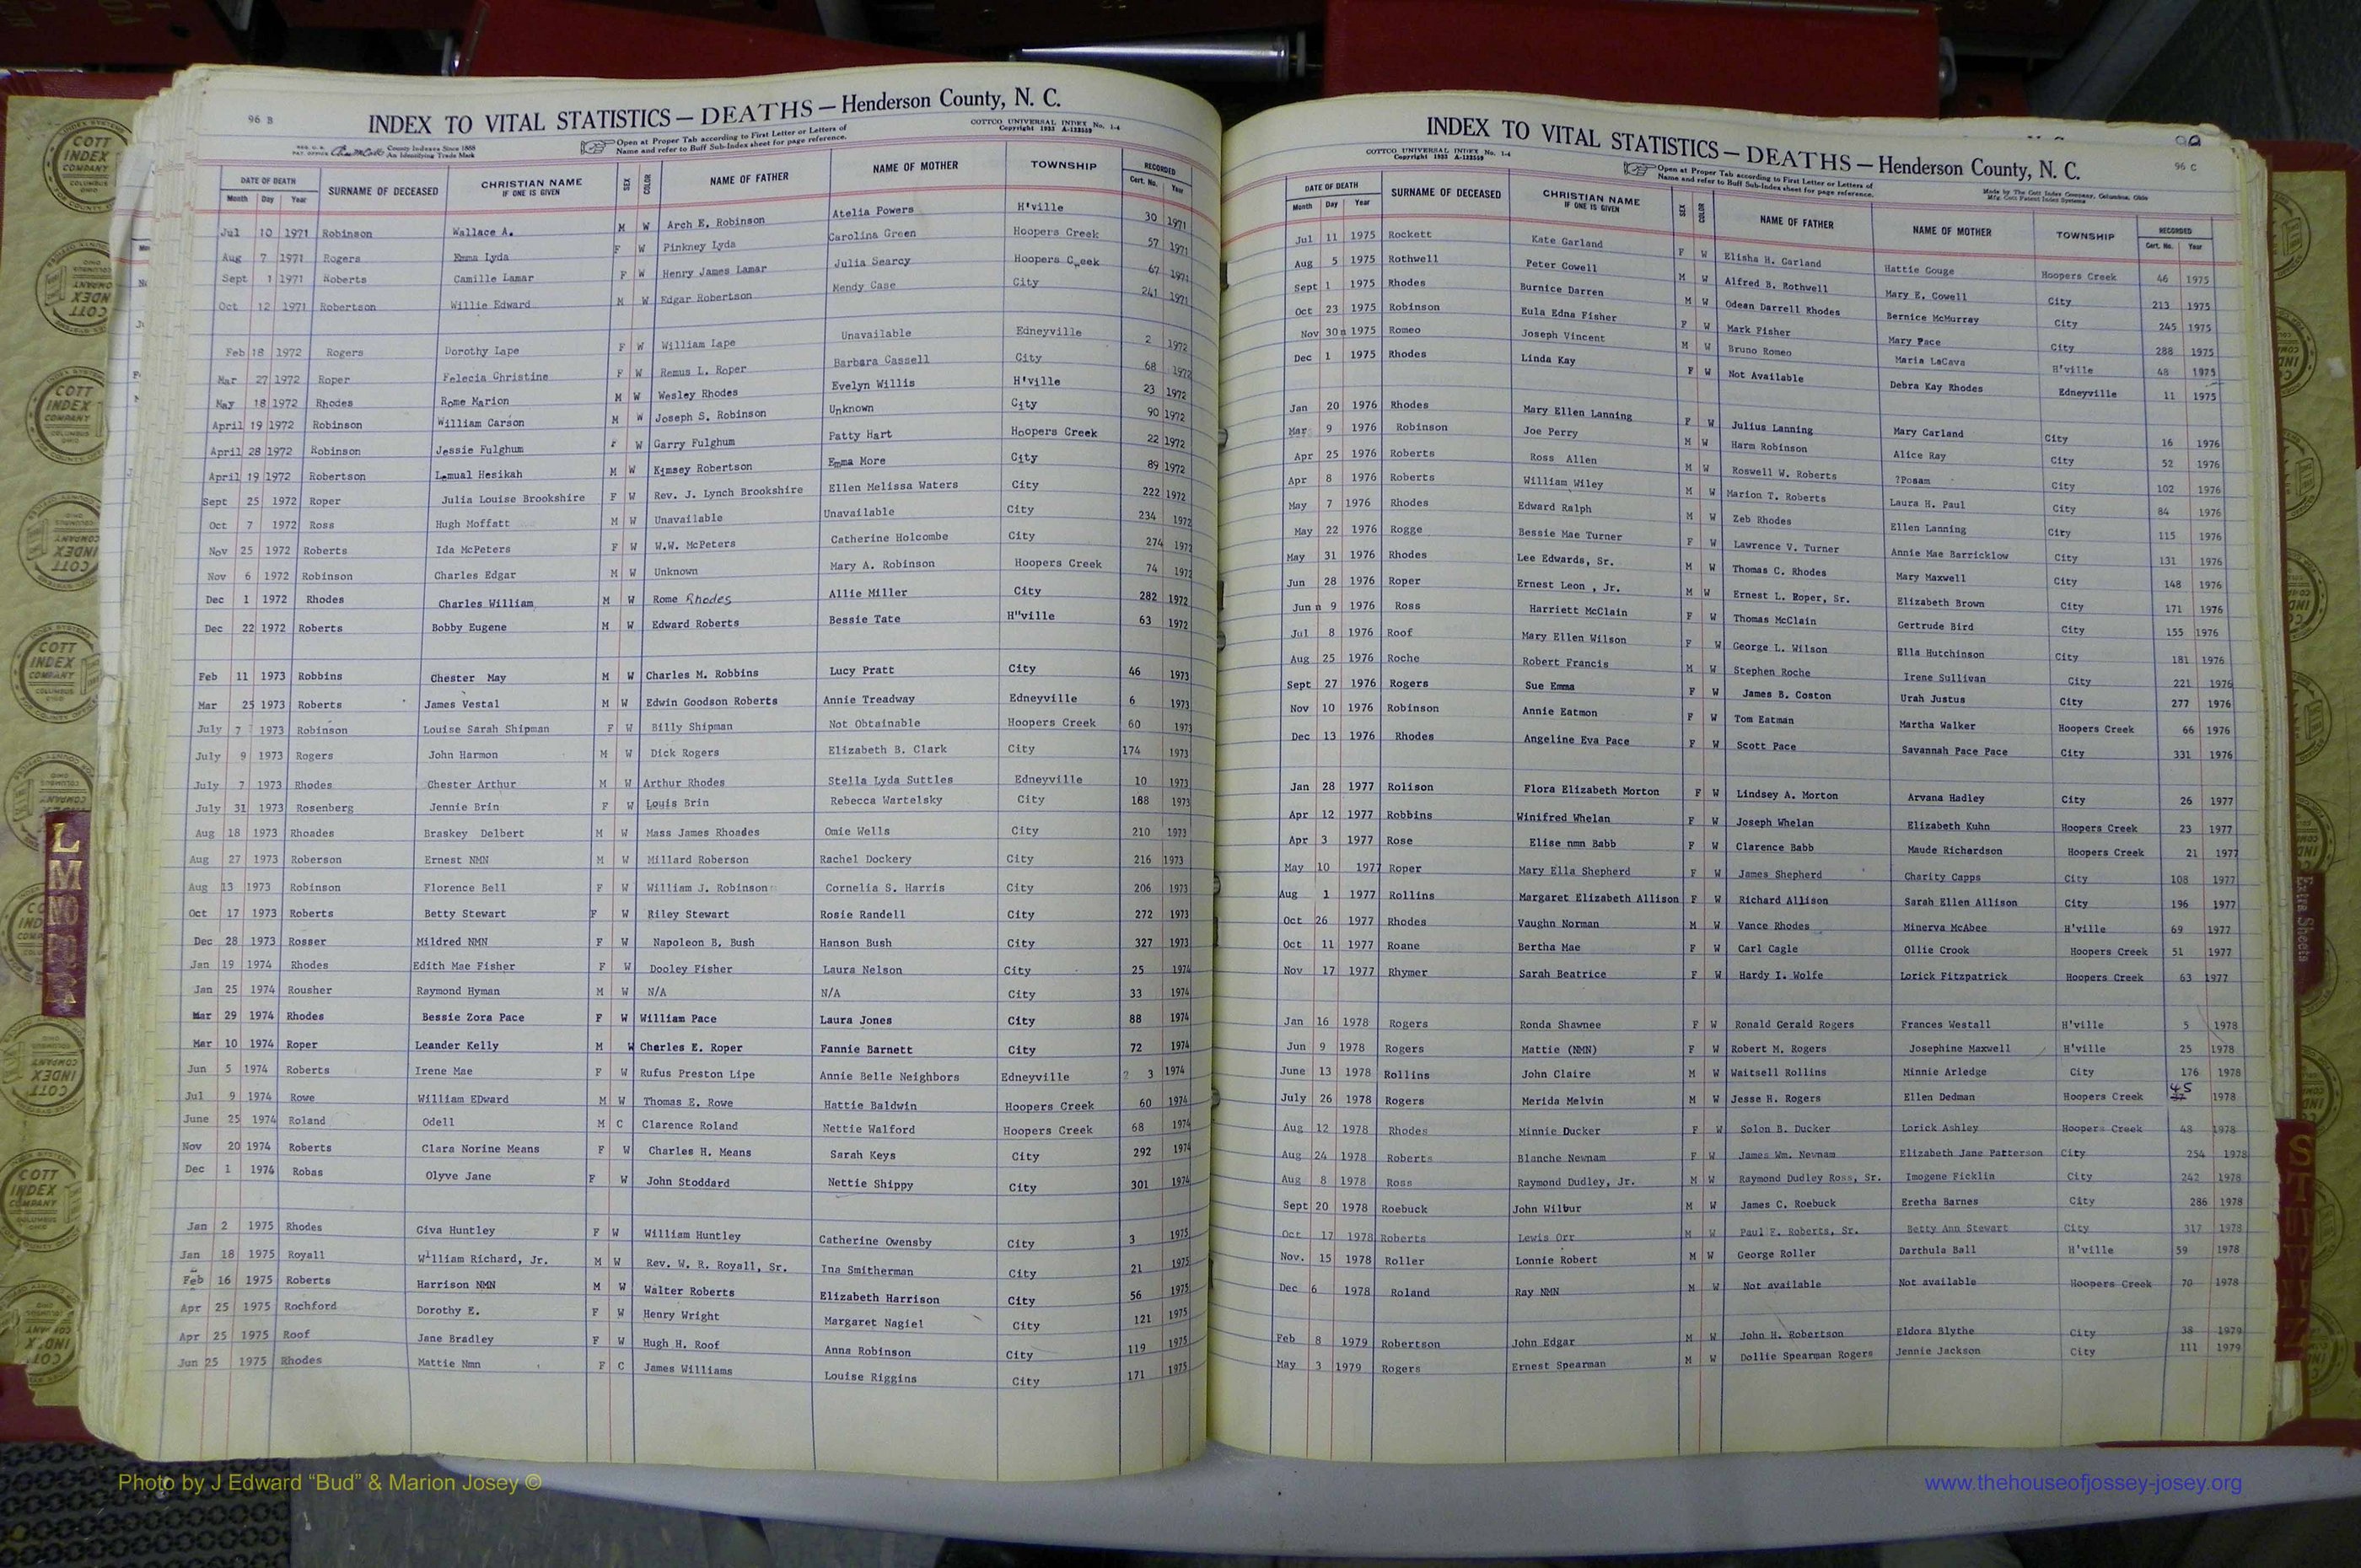 96 B
INDEX TO VITAL STATISTICS — DEATHS — Henderson County, N. C.
REG. U.S. PAT. OFFICE County Indexes Since 1888 An Identifying Trade Mark
Open at Proper Tab according to First Letter or Letters of Name and refer to Buff Sub-Index sheet for page reference.
COTTCO UNIVERSAL INDEX No. 1-4 Copyright 1933 A-132559
DATE OF DEATH SURNAME OF DECEASED CHRISTIAN NAME IF ONE IS GIVEN SEX COLOR NAME OF FATHER NAME OF MOTHER TOWNSHIP RECORDED
Month Day Year Cert. No. Year
Jul 10 1971 Robinson Wallace A. M W Arch E. Robinson Atelia Powers H'ville 30 1971
Aug 7 1971 Rogers Emma Lyda F W Pinkney Lyda Carolina Green Hoopers Creek 57 1971
Sept 1 1971 Roberts Camille Lamar F W Henry James Lamar Julia Searcy Hoopers Creek 67 1971
Oct 12 1971 Robertson Willie Edward M W Edgar Robertson Mendy Case City 241 1971
Feb 18 1972 Rogers Dorothy Lape F W William Lape Unavailable Edneyville 2 1972
Mar 27 1972 Roper Felecia Christine F W Remus L. Roper Barbara Cassell City 68 1972
May 18 1972 Rhodes Rome Marion M W Wesley Rhodes Evelyn Willis H'ville 23 1972
April 19 1972 Robinson William Carson M W Joseph S. Robinson Unknown City 90 1972
April 28 1972 Robinson Jessie Fulghum F W Garry Fulghum Patty Hart Hoopers Creek 22 1972
April 19 1972 Robertson Lemual Hesikah M W Kimsey Robertson Emma More City 89 1972
Sept 25 1972 Roper Julia Louise Brookshire F W Rev. J. Lynch Brookshire Ellen Melissa Waters City 222 1972
Oct 7 1972 Ross Hugh Moffatt M W Unavailable Unavailable City 234 1972
Nov 25 1972 Roberts Ida McPeters F W W.W. McPeters Catherine Holcombe City 274 1972
Nov 6 1972 Robinson Charles Edgar M W Unknown Mary A. Robinson Hoopers Creek 74 1972
Dec 1 1972 Rhodes Charles William M W Rome Rhodes Allie Miller City 282 1972
Dec 22 1972 Roberts Bobby Eugene M W Edward Roberts Bessie Tate H"ville 63 1972
Feb 11 1973 Robbins Chester May M W Charles M. Robbins Lucy Pratt City 46 1973
Mar 25 1973 Roberts James Vestal M W Edwin Goodson Roberts Annie Treadway Edneyville 6 1973
July 7 1973 Robinson Louise Sarah Shipman F W Billy Shipman Not Obtainable Hoopers Creek 60 1973
July 9 1973 Rogers John Harmon M W Dick Rogers Elizabeth B. Clark City 174 1973
July 7 1973 Rhodes Chester Arthur M W Arthur Rhodes Stella Lyda Suttles Edneyville 10 1973
July 31 1973 Rosenberg Jennie Brin F W Louis Brin Rebecca Wartelsky City 188 1973
Aug 18 1973 Rhoades Braskey Delbert M W Mass James Rhoades Omie Wells City 210 1973
Aug 27 1973 Roberson Ernest NMN M W Millard Roberson Rachel Dockery City 216 1973
Aug 13 1973 Robinson Florence Bell F W William J. Robinson Cornelia S. Harris City 206 1973
Oct 17 1973 Roberts Betty Stewart F W Riley Stewart Rosie Randell City 272 1973
Dec 28 1973 Rosser Mildred NMN F W Napoleon B. Bush Hanson Bush City 327 1973
Jan 19 1974 Rhodes Edith Mae Fisher F W Dooley Fisher Laura Nelson City 25 1974
Jan 25 1974 Rousher Raymond Hyman M W N/A N/A City 33 1974
Mar 29 1974 Rhodes Bessie Zora Pace F W William Pace Laura Jones City 88 1974
Mar 10 1974 Roper Leander Kelly M W Charles E. Roper Fannie Barnett City 72 1974
Jun 5 1974 Roberts Irene Mae F W Rufus Preston Lipe Annie Belle Neighbors Edneyville 3 1974
Jul 9 1974 Rowe William EDward M W Thomas E. Rowe Hattie Baldwin Hoopers Creek 60 1974
June 25 1974 Roland Odell M C Clarence Roland Nettie Walford Hoopers Creek 68 1974
Nov 20 1974 Roberts Clara Norine Means F W Charles H. Means Sarah Keys City 292 1974
Dec 1 1974 Robas Olyve Jane F W John Stoddard Nettie Shippy City 301 1974
Jan 2 1975 Rhodes Giva Huntley F W William Huntley Catherine Owensby City 3 1975
Jan 18 1975 Royall William Richard, Jr. M W Rev. W. R. Royall, Sr. Ina Smitherman City 21 1975
Feb 16 1975 Roberts Harrison NMN M W Walter Roberts Elizabeth Harrison City 56 1975
Apr 25 1975 Rochford Dorothy E. F W Henry Wright Margaret Nagiel City 121 1975
Apr 25 1975 Roof Jane Bradley F W Hugh H. Roof Anna Robinson City 119 1975
Jun 25 1975 Rhodes Mattie Nmn F C James Williams Louise Riggins City 171 1975
96 C
INDEX TO VITAL STATISTICS — DEATHS — Henderson County, N. C.
COTTCO UNIVERSAL INDEX No. 1-4 Copyright 1933 A-132559
Open at Proper Tab according to First Letter or Letters of Name and refer to Buff Sub-Index sheet for page reference.
Made by The Cott Index Company, Columbus, Ohio Mfg. Cott Patent Index Systems
DATE OF DEATH SURNAME OF DECEASED CHRISTIAN NAME IF ONE IS GIVEN SEX COLOR NAME OF FATHER NAME OF MOTHER TOWNSHIP RECORDED
Month Day Year Cert. No. Year
Jul 11 1975 Rockett Kate Garland F W Elisha H. Garland Hattie Gouge Hoopers Creek 46 1975
Aug 5 1975 Rothwell Peter Cowell M W Alfred B. Rothwell Mary E. Cowell City 213 1975
Sept 1 1975 Rhodes Burnice Darren M W Odean Darrell Rhodes Bernice McMurray City 245 1975
Oct 23 1975 Robinson Eula Edna Fisher F W Mark Fisher Mary Pace City 288 1975
Nov 30n 1975 Romeo Joseph Vincent M W Bruno Romeo Maria LaCava H'ville 48 1975
Dec 1 1975 Rhodes Linda Kay F W Not Available Debra Kay Rhodes Edneyville 11 1975
Jan 20 1976 Rhodes Mary Ellen Lanning F W Julius Lanning Mary Carland City 16 1976
Mar 9 1976 Robinson Joe Perry M W Harm Robinson Alice Ray City 52 1976
Apr 25 1976 Roberts Ross Allen M W Roswell W. Roberts ?Posam City 102 1976
Apr 8 1976 Roberts William Wiley M W Marion T. Roberts Laura H. Paul City 84 1976
May 7 1976 Rhodes Edward Ralph M W Zeb Rhodes Ellen Lanning City 115 1976
May 22 1976 Rogge Bessie Mae Turner F W Lawrence V. Turner Annie Mae Barricklow City 131 1976
May 31 1976 Rhodes Lee Edwards, Sr. M W Thomas C. Rhodes Mary Maxwell City 148 1976
Jun 28 1976 Roper Ernest Leon , Jr. M W Ernest L. Roper, Sr. Elizabeth Brown City 171 1976
Jun n 9 1976 Ross Harriett McClain F W Thomas McClain Gertrude Bird City 155 1976
Jul 8 1976 Roof Mary Ellen Wilson F W George L. Wilson Ella Hutchinson City 181 1976
Aug 25 1976 Roche Robert Francis M W Stephen Roche Irene Sullivan City 221 1976
Sept 27 1976 Rogers Sue Emma F W James B. Coston Urah Justus City 277 1976
Nov 10 1976 Robinson Annie Eatmon F W Tom Eatman Martha Walker Hoopers Creek 66 1976
Dec 13 1976 Rhodes Angeline Eva Pace F W Scott Pace Savannah Pace Pace City 331 1976
Jan 28 1977 Rolison Flora Elizabeth Morton F W Lindsey A. Morton Arvana Hadley City 26 1977
Apr 12 1977 Robbins Winifred Whelan F W Joseph Whelan Elizabeth Kuhn Hoopers Creek 23 1977
Apr 3 1977 Rose Elise nmn Babb F W Clarence Babb Maude Richardson Hoopers Creek 21 1977
May 10 1977 Roper Mary Ella Shepherd F W James Shepherd Charity Capps City 108 1977
Aug 1 1977 Rollins Margaret Elizabeth Allison F W Richard Allison Sarah Ellen Allison City 196 1977
Oct 26 1977 Rhodes Vaughn Norman M W Vance Rhodes Minerva McAbee H'ville 69 1977
Oct 11 1977 Roane Bertha Mae F W Carl Cagle Ollie Crook Hoopers Creek 51 1977
Nov 17 1977 Rhymer Sarah Beatrice F W Hardy I. Wolfe Lorick Fitzpatrick Hoopers Creek 63 1977
Jan 16 1978 Rogers Ronda Shawnee F W Ronald Gerald Rogers Frances Westall H'ville 5 1978
Jun 9 1978 Rogers Mattie (NMN) F W Robert M. Rogers Josephine Maxwell H'ville 25 1978
June 13 1978 Rollins John Claire M W Waitsell Rollins Minnie Arledge City 176 1978
July 26 1978 Rogers Merida Melvin M W Jesse H. Rogers Ellen Dedman Hoopers Creek 45 1978
Aug 12 1978 Rhodes Minnie Ducker F W Solon B. Ducker Lorick Ashley Hoopers Creek 48 1978
Aug 24 1978 Roberts Blanche Newnam F W James Wm. Newnam Elizabeth Jane Patterson City 254 1978
Aug 8 1978 Ross Raymond Dudley, Jr. M W Raymond Dudley Ross, Sr. Imogene Ficklin City 242 1978
Sept 20 1978 Roebuck John Wilbur M W James C. Roebuck Eretha Barnes City 286 1978
Oct 17 1978 Roberts Lewis Orr M W Paul F. Roberts, Sr. Betty Ann Stewart City 317 1978
Nov. 15 1978 Roller Lonnie Robert M W George Roller Darthula Ball H'ville 59 1978
Dec 6 1978 Roland Ray NMN M W Not available Not available Hoopers Creek 70 1978
Feb 8 1979 Robertson John Edgar M W John H. Robertson Eldora Blythe City 38 1979
May 3 1979 Rogers Ernest Spearman M W Dollie Spearman Rogers Jennie Jackson City 111 1979
L
M
Extra Sheets
S
T
COTT INDEX COMPANY COLUMBUS OHIO
Photo by J Edward “Bud” & Marion Josey ©
www.thehouseofjossey-josey.org